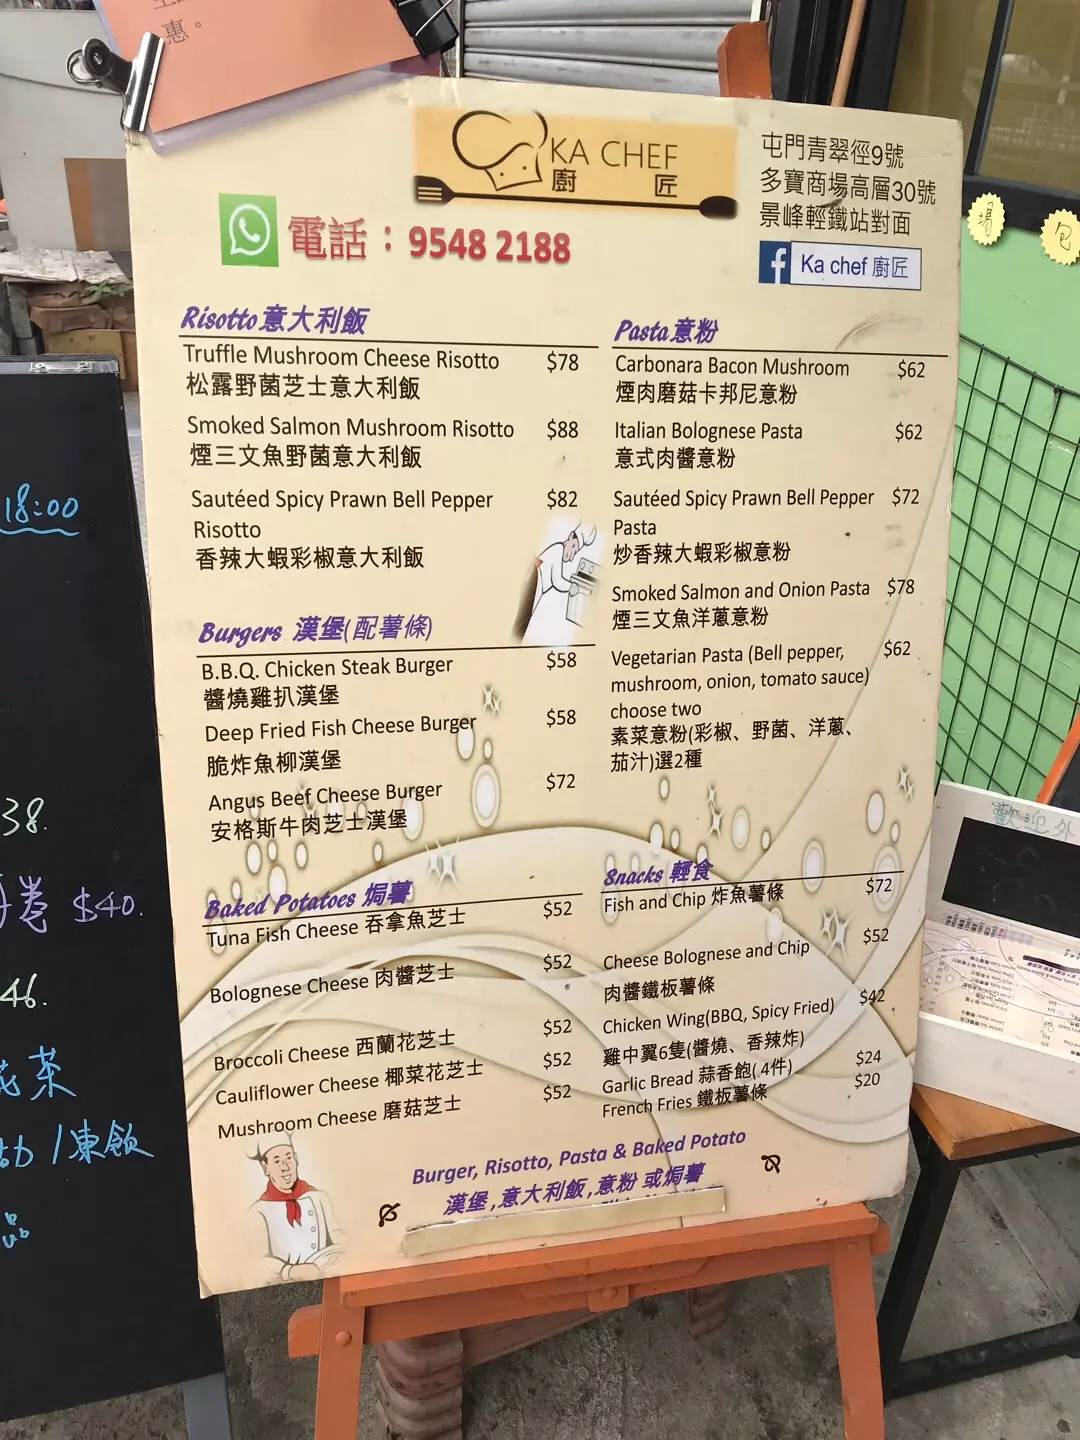 惠。
KA CHEF
廚 匠
屯門青翠徑9號
多寶商場高層30號
景峰輕鐵站對面
電話：9548 2188
Ka chef 廚匠
Risotto 意大利飯
Truffle Mushroom Cheese Risotto $78
松露野菌芝士意大利飯
Smoked Salmon Mushroom Risotto $88
煙三文魚野菌意大利飯
Sautéed Spicy Prawn Bell Pepper $82
Risotto
香辣大蝦彩椒意大利飯
Burgers 漢堡(配薯條)
B.B.Q. Chicken Steak Burger $58
醬燒雞扒漢堡
Deep Fried Fish Cheese Burger $58
脆炸魚柳漢堡
Angus Beef Cheese Burger $72
安格斯牛肉芝士漢堡
Baked Potatoes 焗薯
Tuna Fish Cheese 吞拿魚芝士 $52
Bolognese Cheese 肉醬芝士 $52
Broccoli Cheese 西蘭花芝士 $52
Cauliflower Cheese 椰菜花芝士 $52
Mushroom Cheese 磨菇芝士 $52
Pasta 意粉
Carbonara Bacon Mushroom $62
煙肉磨菇卡邦尼意粉
Italian Bolognese Pasta $62
意式肉醬意粉
Sautéed Spicy Prawn Bell Pepper $72
Pasta
炒香辣大蝦彩椒意粉
Smoked Salmon and Onion Pasta $78
煙三文魚洋蔥意粉
Vegetarian Pasta (Bell pepper, $62
mushroom, onion, tomato sauce)
choose two
素菜意粉(彩椒、野菌、洋蔥、
茄汁)選2種
Snacks 輕食
Fish and Chip 炸魚薯條 $72
Cheese Bolognese and Chip $52
肉醬鐵板薯條
Chicken Wing(BBQ, Spicy Fried) $42
雞中翼6隻(醬燒、香辣炸)
Garlic Bread 蒜香飽( 4件) $24
French Fries 鐵板薯條 $20
Burger, Risotto, Pasta & Baked Potato
漢堡 ,意大利飯 ,意粉 或焗薯
18:00
38.
卷 $40.
46.
花茶
/ 凍飲
品
場
包
歡迎外